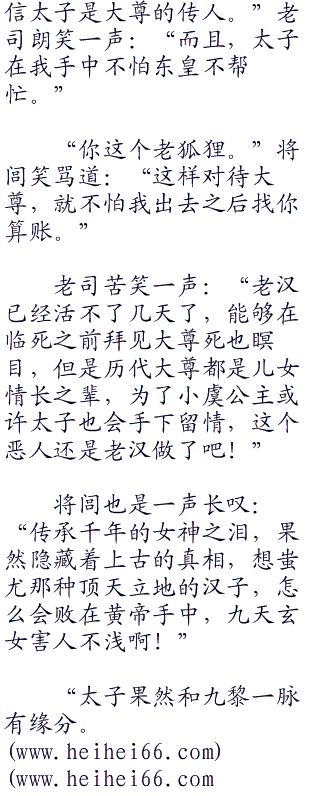 信太子是大尊的传人。”老
司朗笑一声：“而且，太子
在我手中不怕东皇不帮
忙。”
“你这个老狐狸。”将
闾笑骂道：“这样对待大
尊，就不怕我出去之后找你
算账。”
老司苦笑一声：“老汉
已经活不了几天了，能够在
临死之前拜见大尊死也瞑
目，但是历代大尊都是儿女
情长之辈，为了小虞公主或
许太子也会手下留情，这个
恶人还是老汉做了吧！”
将闾也是一声长叹：
“传承千年的女神之泪，果
然隐藏着上古的真相，想蚩
尤那种顶天立地的汉子，怎
么会败在黄帝手中，九天玄
女害人不浅啊！”
“太子果然和九黎一脉
有缘分。
(www.heihei66.com)
(www.heihei66.com